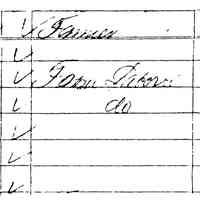 Farmer
Farm Labor
do